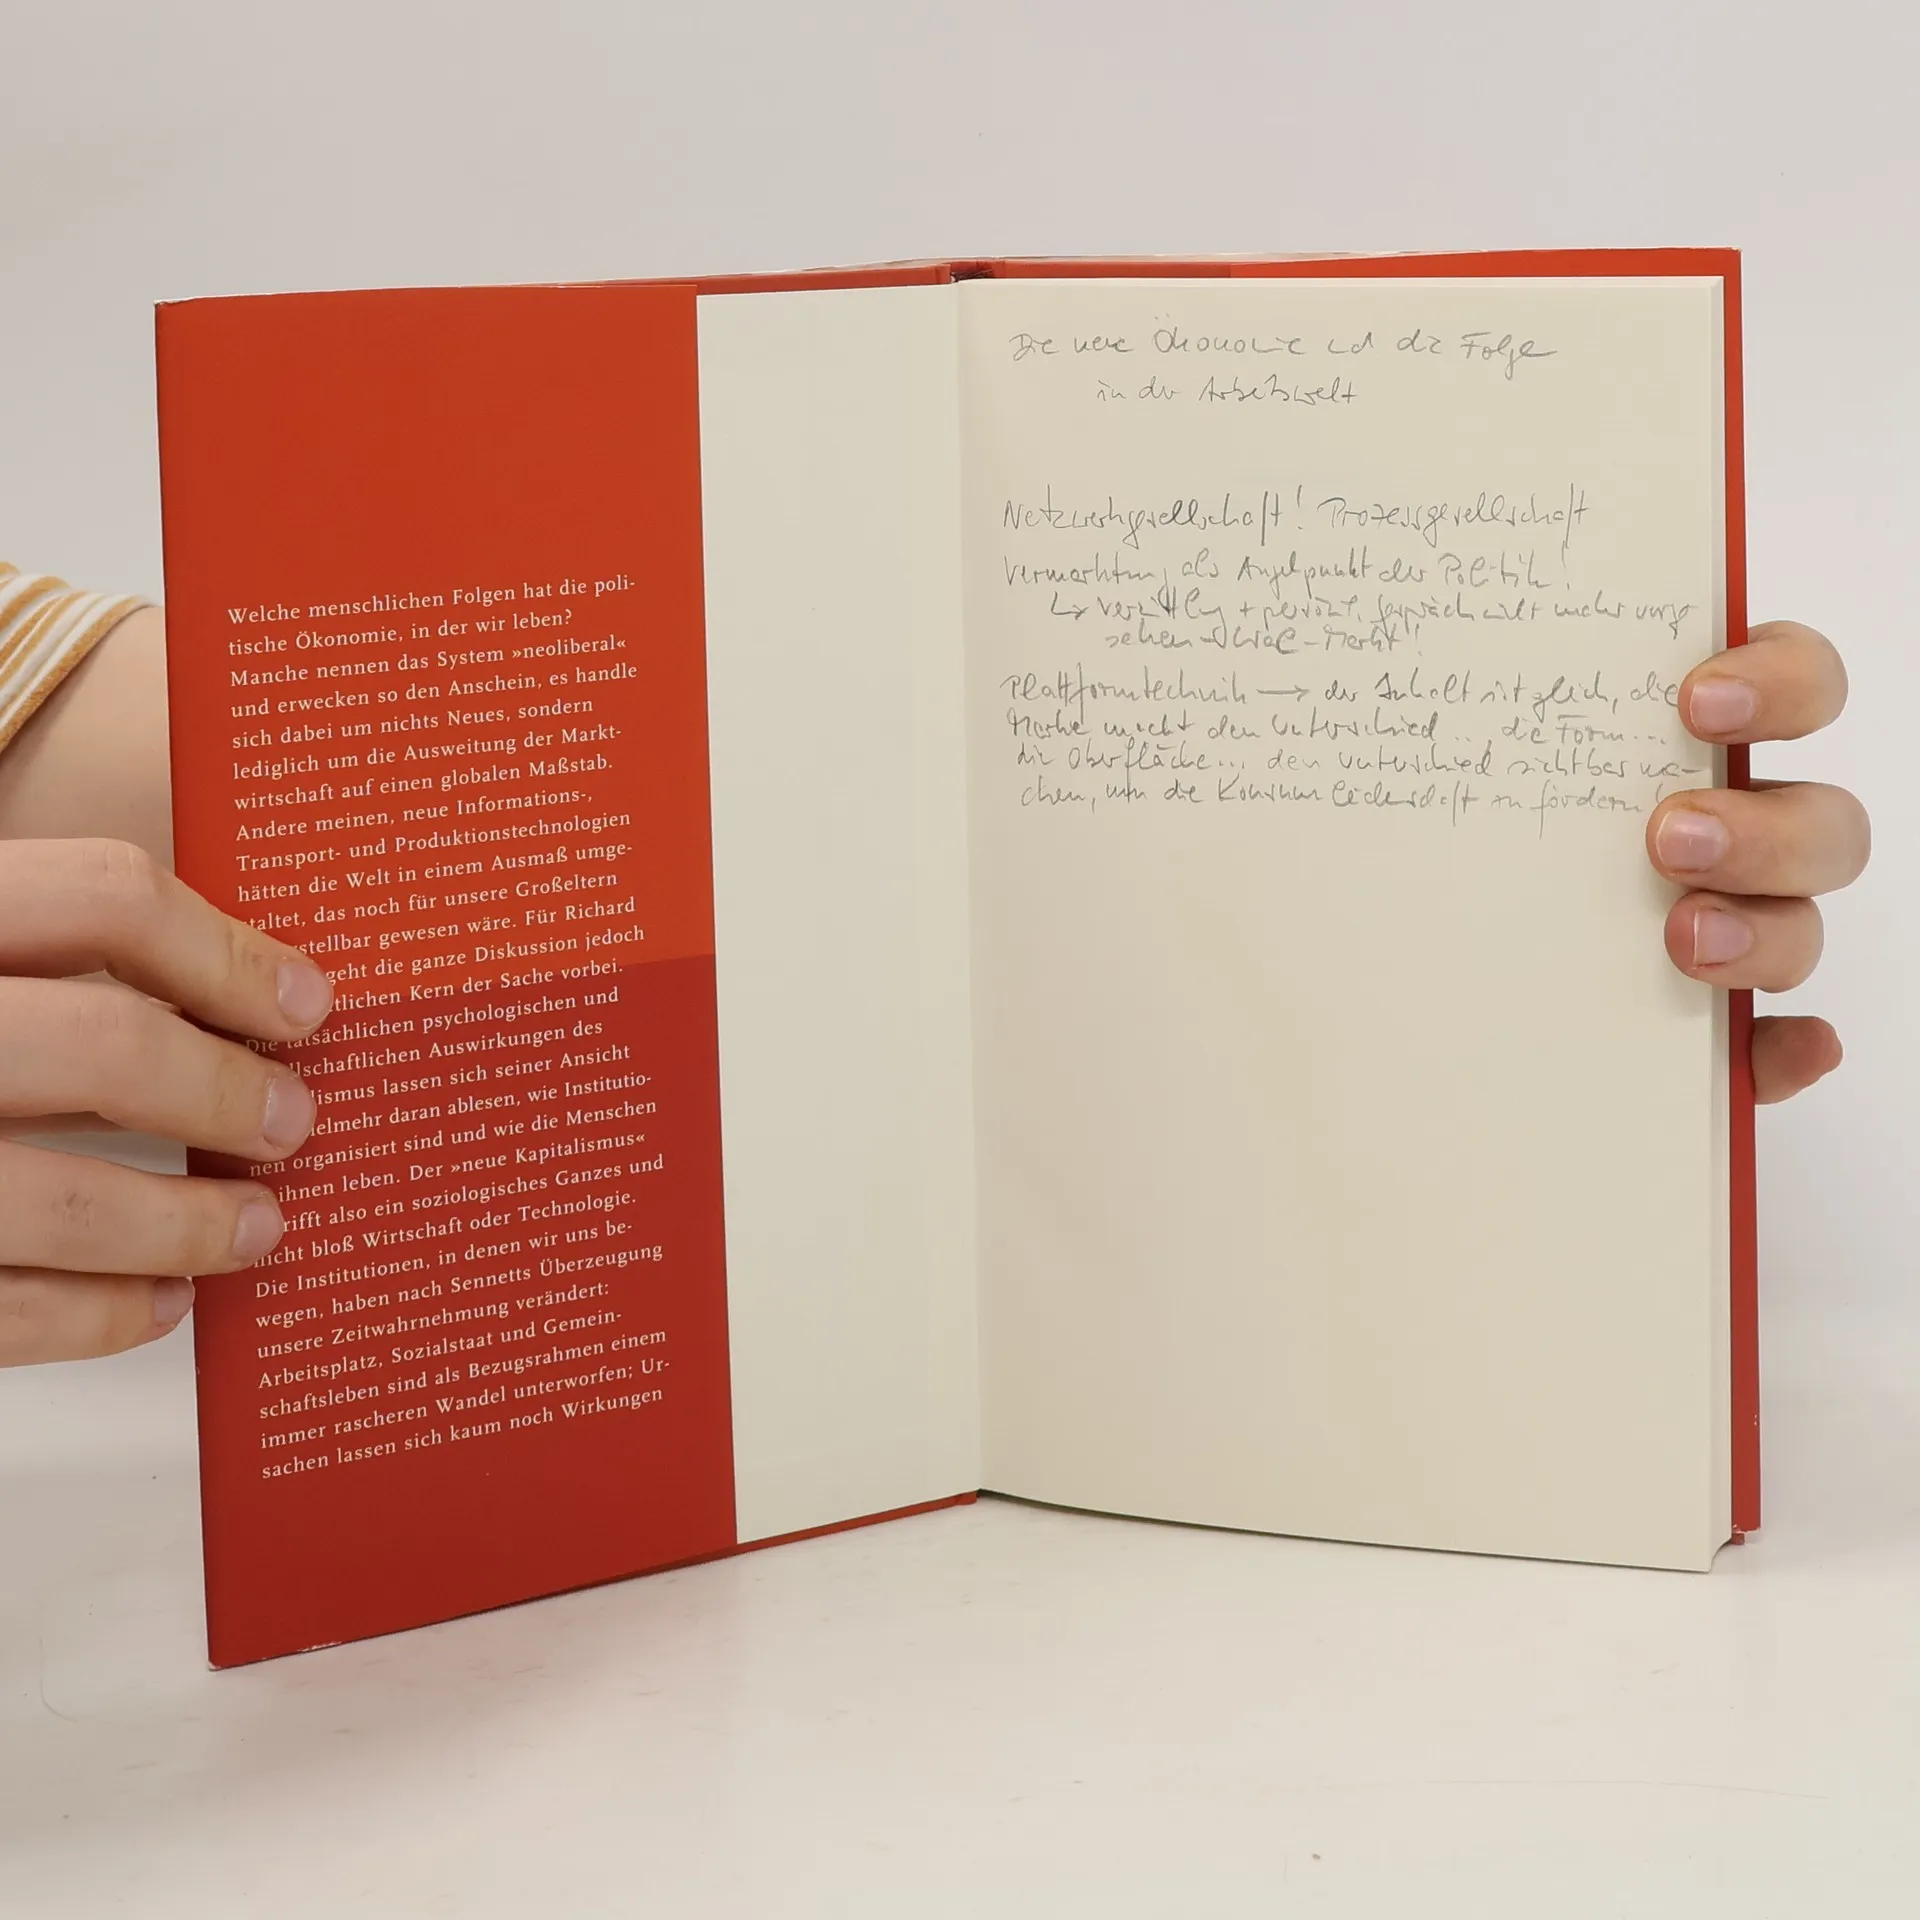 Welche menschlichen Folgen hat die poli-
tische Ökonomie, in der wir leben?
Manche nennen das System »neoliberal«
und erwecken so den Anschein, es handle
sich dabei um nichts Neues, sondern
lediglich um die Ausweitung der Markt-
wirtschaft auf einen globalen Maßstab.
Andere meinen, neue Informations-,
Transport- und Produktionstechnologien
hätten die Welt in einem Ausmaß umge-
taltet, das noch für unsere Großeltern
stellbar gewesen wäre. Für Richard
geht die ganze Diskussion jedoch
tlichen Kern der Sache vorbei.
Die tatsächlichen psychologischen und
llschaftlichen Auswirkungen des
lismus lassen sich seiner Ansicht
ielmehr daran ablesen, wie Institutio-
nen organisiert sind und wie die Menschen
ihnen leben. Der »neue Kapitalismus«
rifft also ein soziologisches Ganzes und
nicht bloß Wirtschaft oder Technologie.
Die Institutionen, in denen wir uns be-
wegen, haben nach Sennetts Überzeugung
unsere Zeitwahrnehmung verändert:
Arbeitsplatz, Sozialstaat und Gemein-
schaftsleben sind als Bezugsrahmen einem
immer rascheren Wandel unterworfen; Ur-
sachen lassen sich kaum noch Wirkungen
Die neue Ökonomie und die Folge
in der Arbeitswelt
Netzwerkgesellschaft! Prozessgesellschaft
Vermarktung als Angelpunkt der Politik!
↳ + persönl. Gespräch nicht mehr vorge
sehen → Markt!
Plattformtechnik → der Inhalt ist gleich, die
Marke macht den Unterschied .., die Form...
die Oberfläche... den Unterschied sichtbar ma-
chen, um die Konsumleidenschaft zu fördern!